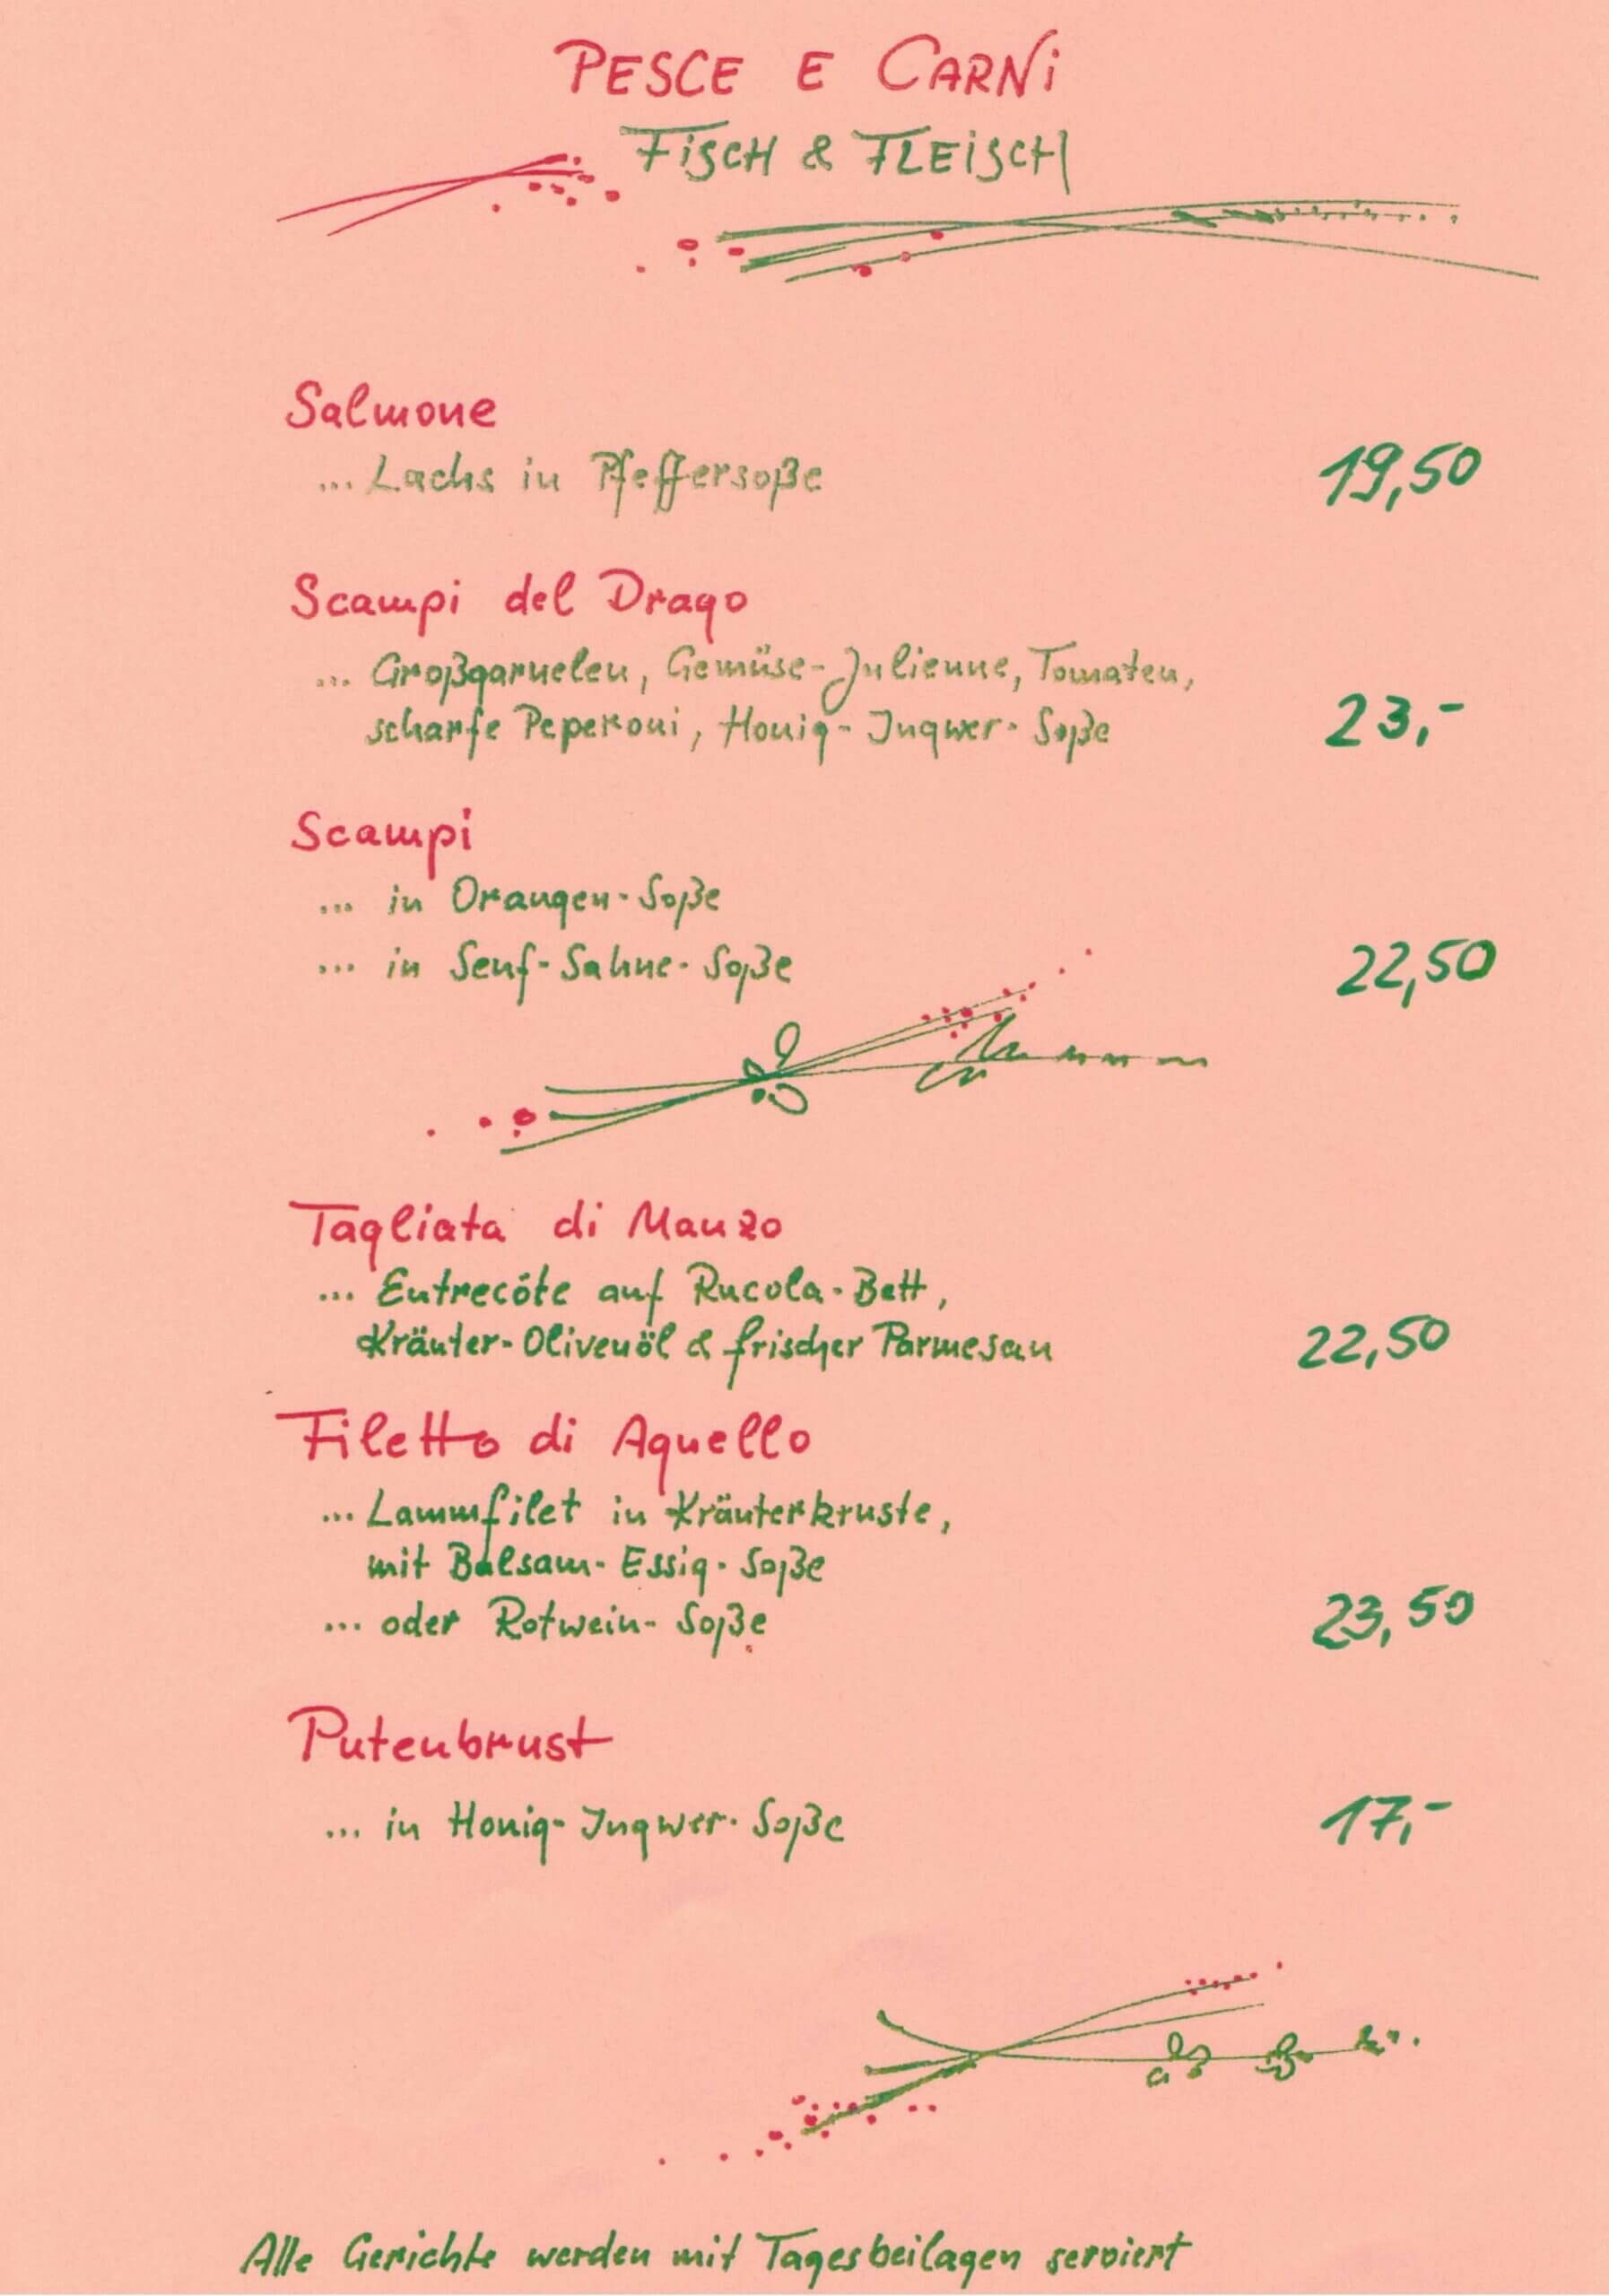 PESCE E CARNi
FiSCH & FLEiSCH
Salmone
... Lachs in Pfeffersoße
19,50
Scampi del Drago
... Großgarnelen, Gemüse-Julienne, Tomaten,
scharfe Peperoni, Honig-Ingwer-Soße
23,-
Scampi
... in Orangen-Soße
... in Senf-Sahne-Soße
22,50
Tagliata di Manzo
... Entrecôte auf Rucola-Bett,
Kräuter-Olivenöl & frischer Parmesan
22,50
Filetto di Agnello
... Lammfilet in Kräuterkruste,
mit Balsam-Essig-Soße
... oder Rotwein-Soße
23,50
Putenbrust
... in Honig-Ingwer-Soße
17,-
Alle Gerichte werden mit Tagesbeilagen serviert